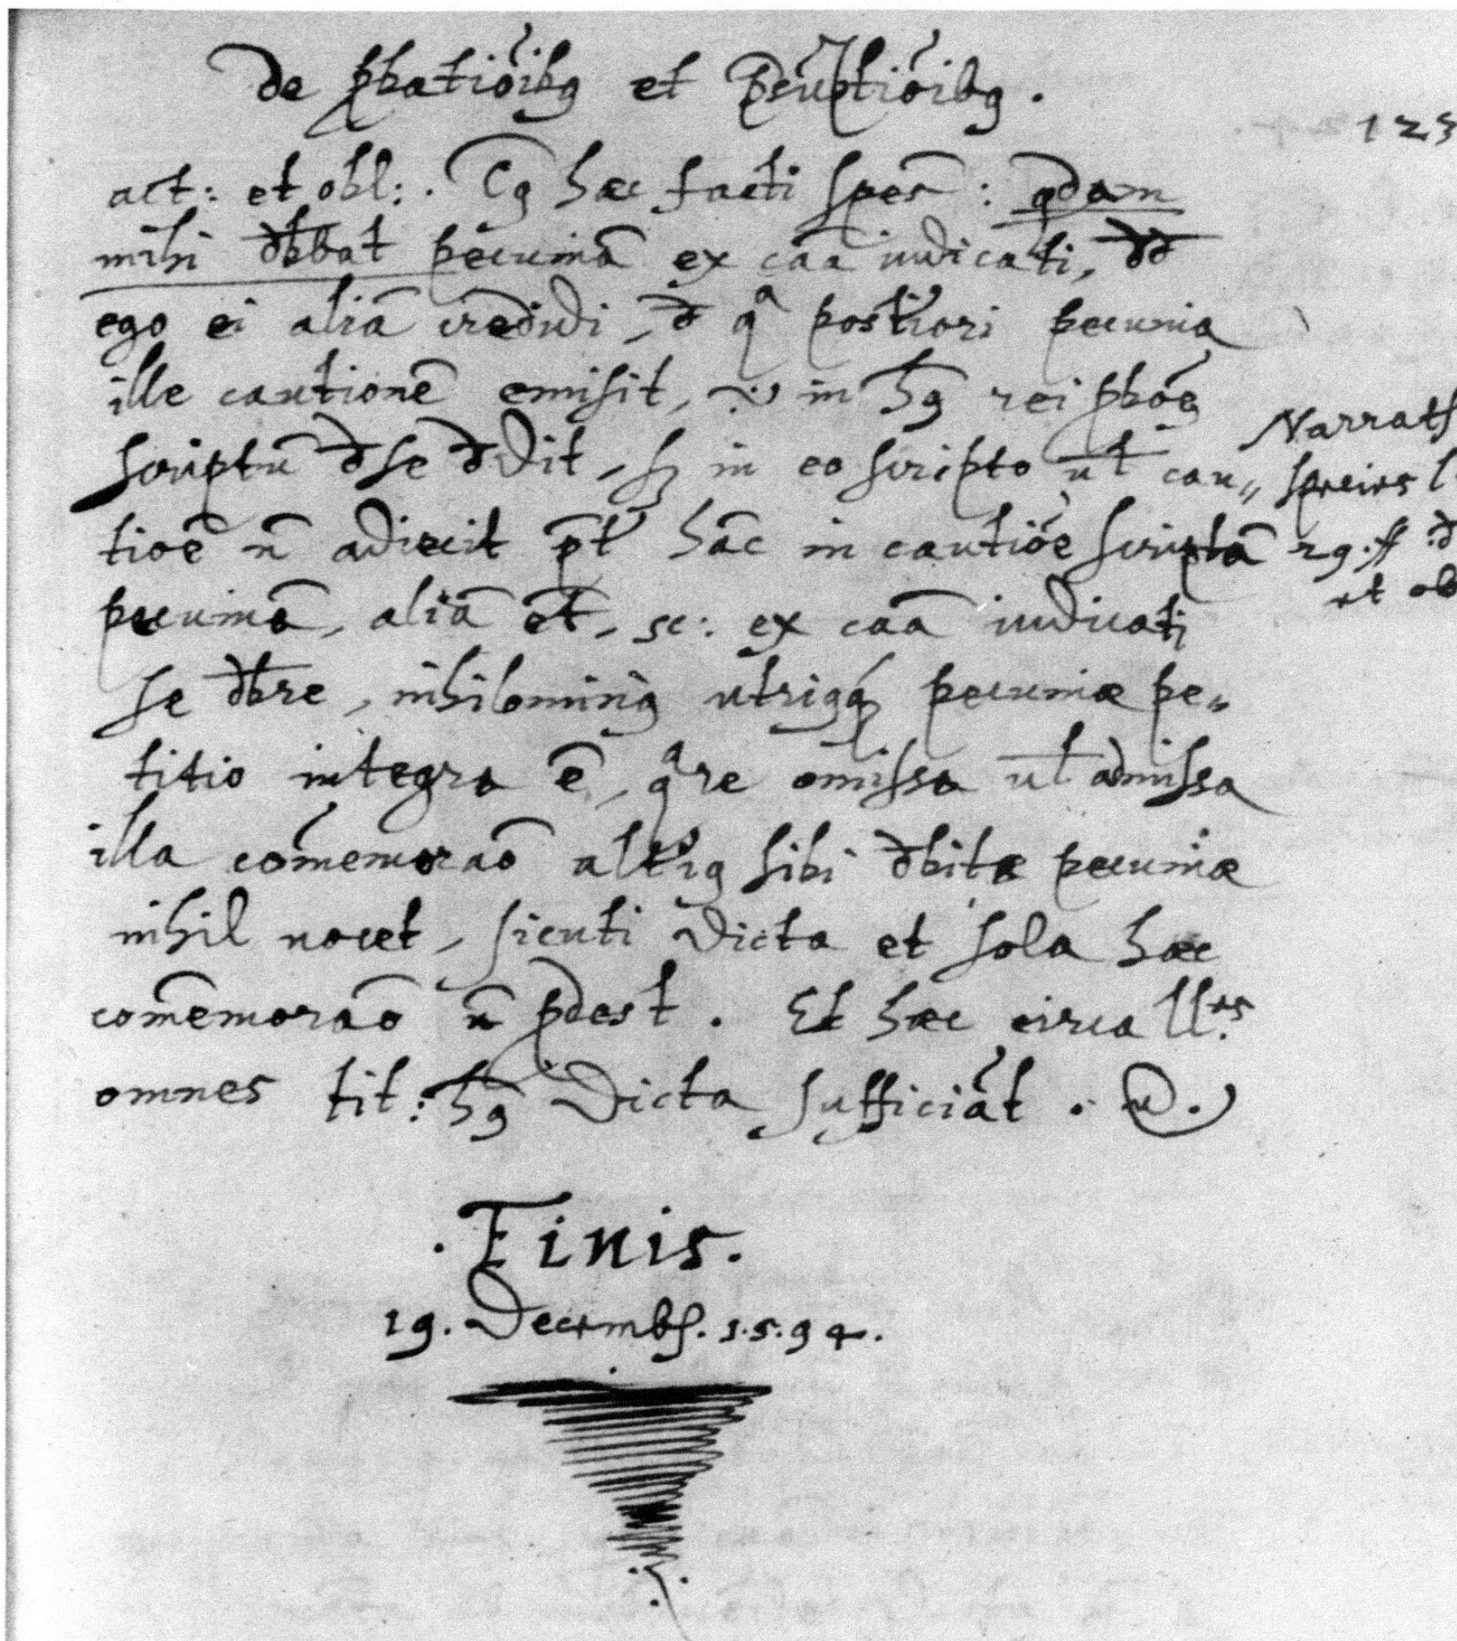 De ꝓbatiōibꝫ et Pͤsūptiōibꝫ.
123
act: et obl:. Cꝯ hæc facti spēs: qdam
mihi dēbat pecuniā ex cāa iudicati,
ego ei aliā credidi, đ qᵃ posteriori pecunia
ille cautionē emisit, in hꝯ rei ꝓbōē
scriptū đse dedit, sꝫ in eo scripto ul̄ cau„
tiōē n̄ adiecit p̄t hāc in cautiōe scriptā
pecuniā, aliā ēt, sc: ex cāa iudicati
se dēbre, nihilominꝯ utriqꝫ pecuniæ pe„
titio integra ē, qᵃre omissa ul̄ admissa
illa com̄emoraō altiꝯ sibi đbitæ pecuniæ
nihil nocet, sicuti dicta et sola hæc
com̄emoraō n̄ ꝓdest. Et hæc circa ll.es
omnes tit: hꝯ Dicta sufficiāt.
Narrat
species l
29. ff
et ob
.Finis.
19. Decembs. 1.5.94.